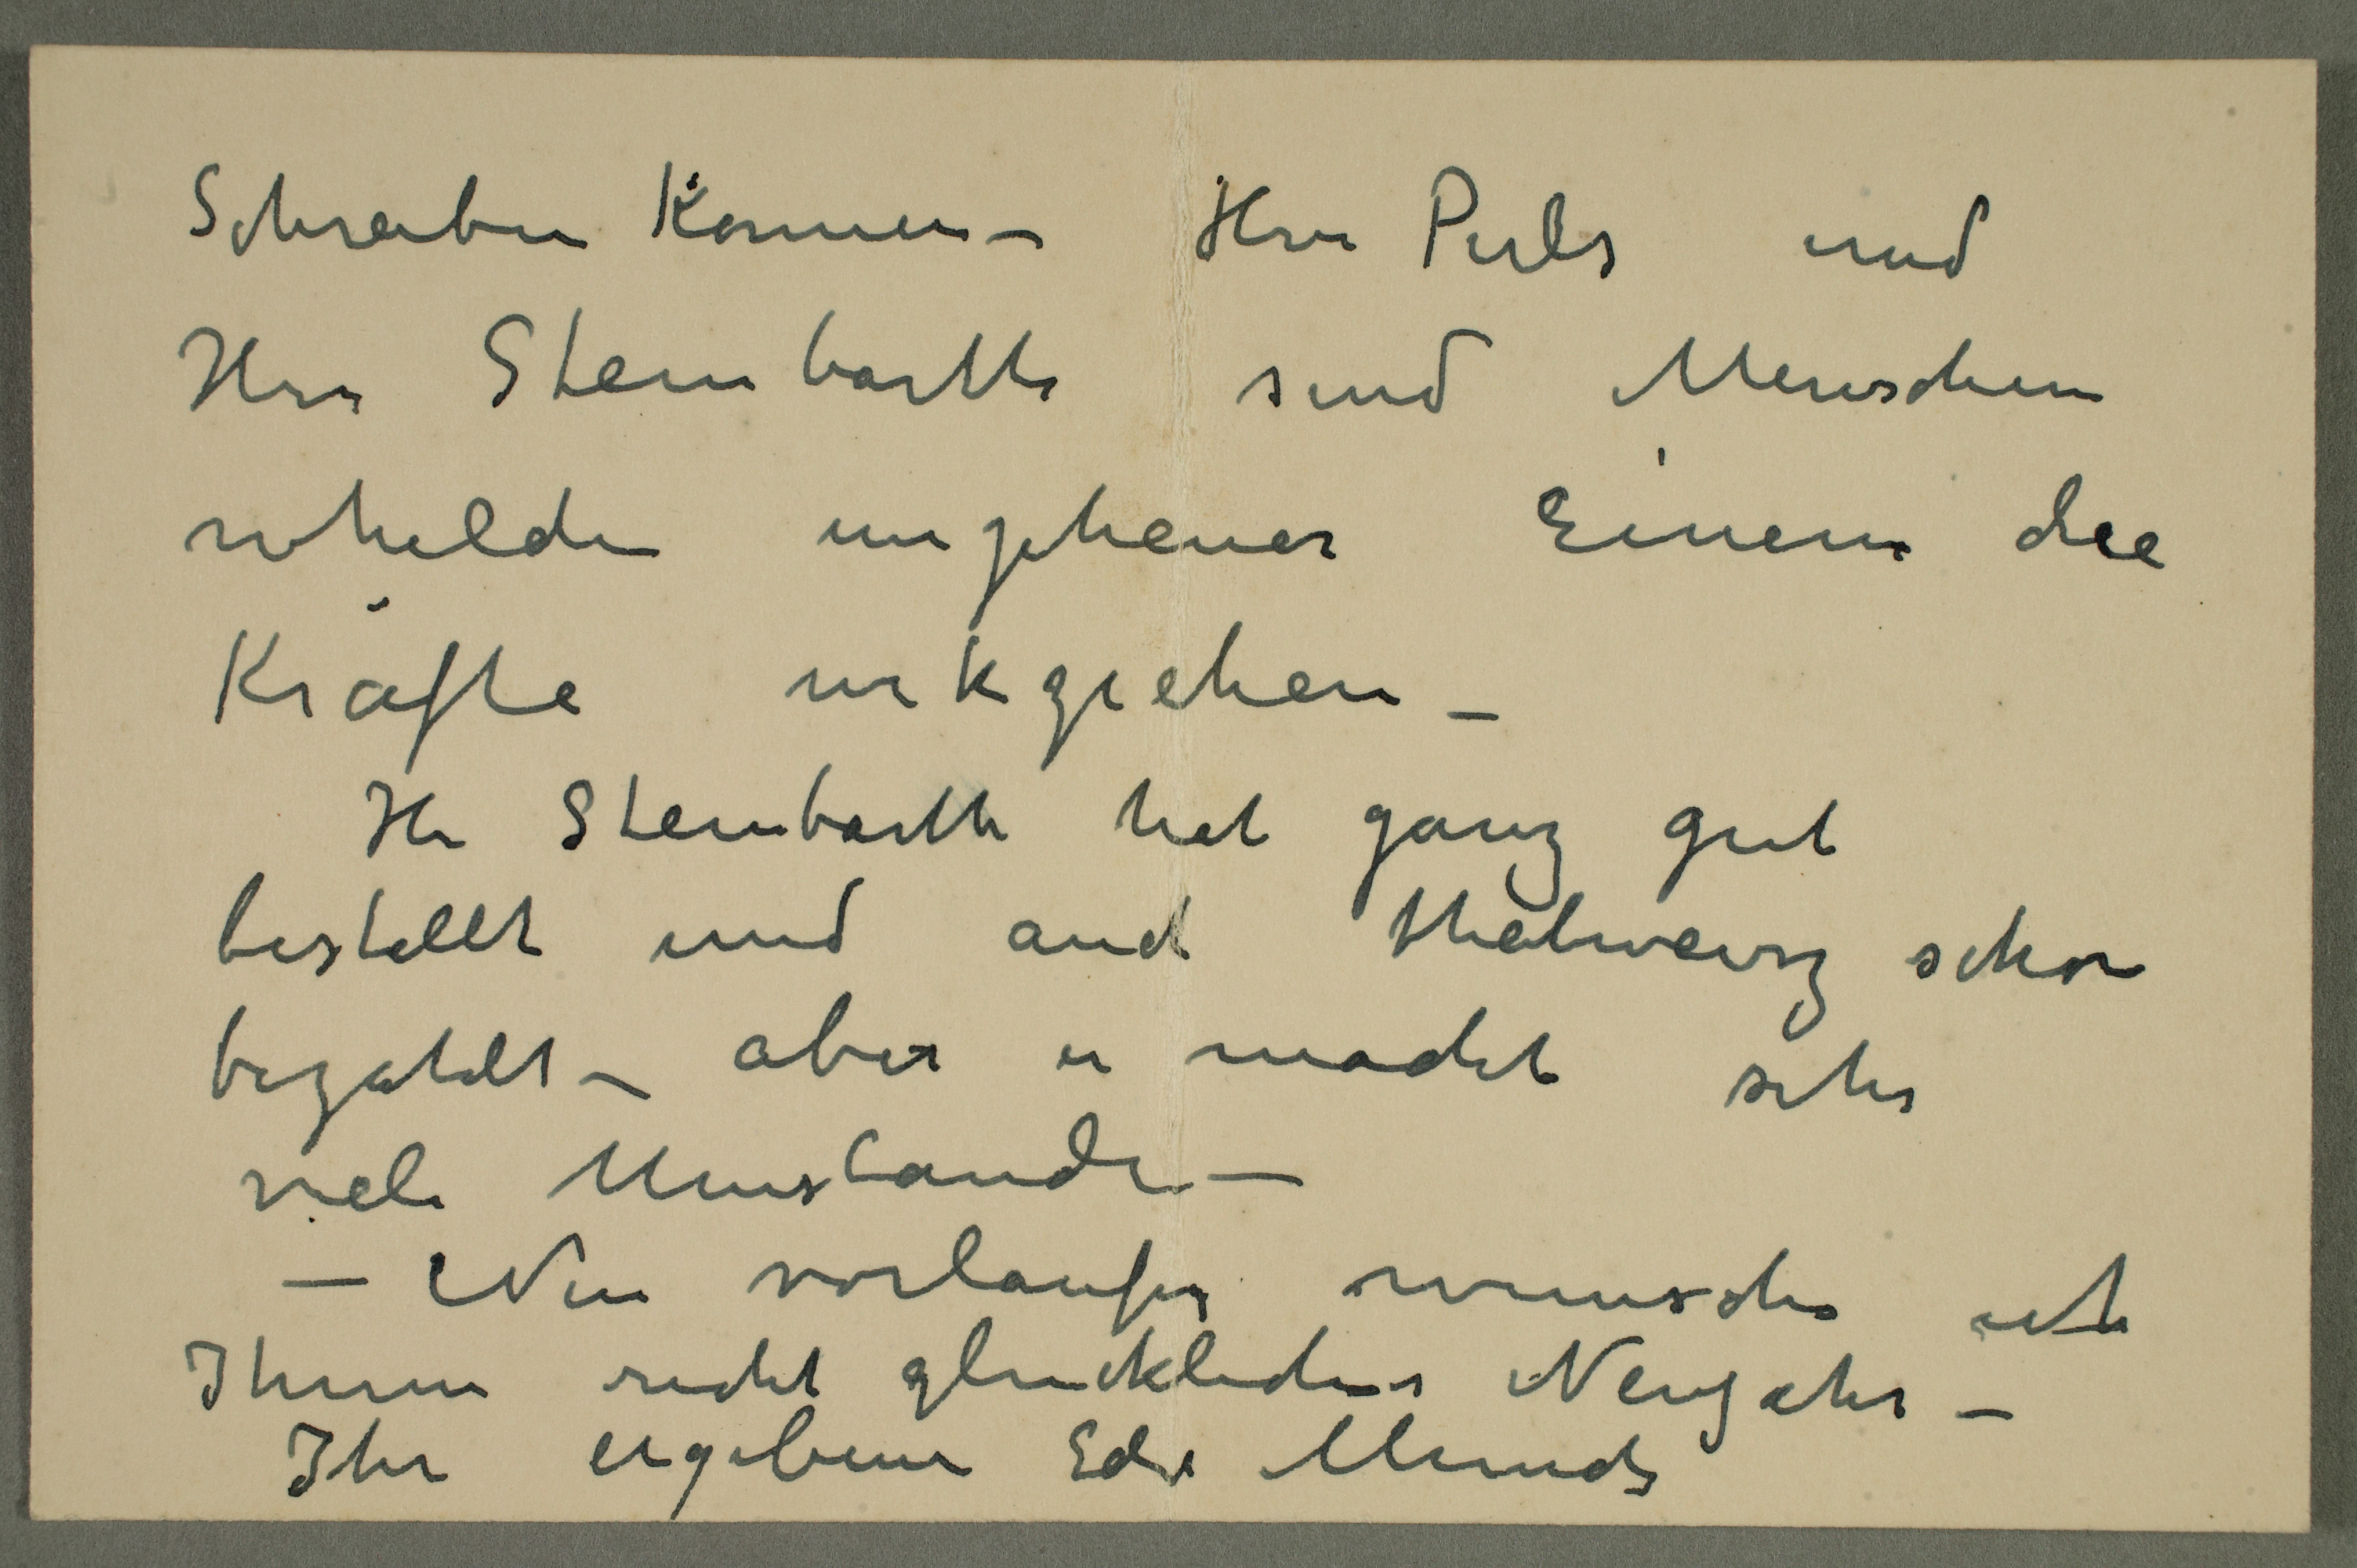 Schreiben können – Herr Perls und
Herr Steinbarth sind Menschen
whelche ungeheuer Einem die
Kräfte wekziehen –
Hr Steinbarth hat ganz gut
bestellt und auch theilweise schon
bezahlt – aber er macht sehr
viele Umstande –
– Nun vorlaufig wunsche ich
Ihnen recht gluckliches Neujahr –
Ihr ergebener Edv Munch